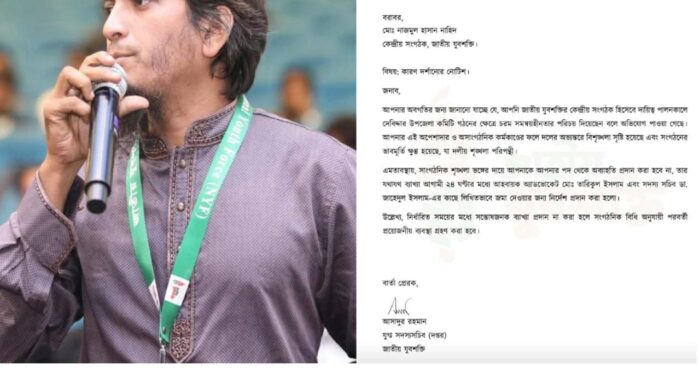 Youth Force (NYF)
বরাবর,
মোঃ নাজমুল হাসান নাহিদ
কেন্দ্রীয় সংগঠক, জাতীয় যুবশক্তি।
বিষয়: কারণ দর্শানোর নোটিশ।
জনাব,
আপনার অবগতির জন্য জানানো যাচ্ছে যে, আপনি জাতীয় যুবশক্তির কেন্দ্রীয় সংগঠক হিসেবে দায়িত্ব পালনকালে
দেবিদ্বার উপজেলা কমিটি গঠনের ক্ষেত্রে চরম সমন্বয়হীনতার পরিচয় দিয়েছেন বলে অভিযোগ পাওয়া গেছে।
আপনার এই অপেশাদার ও অসাংগঠনিক কর্মকাণ্ডের ফলে দলের অভ্যন্তরে বিশৃঙ্খলা সৃষ্টি হয়েছে এবং সংগঠনের
ভাবমূর্তি ক্ষুণ্ণ হয়েছে, যা দলীয় শৃঙ্খলা পরিপন্থী।
এমতাবস্থায়, সাংগঠনিক শৃঙ্খলা ভঙ্গের দায়ে আপনাকে আপনার পদ থেকে অব্যাহতি প্রদান করা হবে না, তার
যথাযথ ব্যাখ্যা আগামী ২৪ ঘণ্টার মধ্যে আহবায়ক অ্যাডভোকেট মোঃ তারিকুল ইসলাম এবং সদস্য সচিব ডা.
জাহেদুল ইসলাম-এর কাছে লিখিতভাবে জমা দেওয়ার জন্য নির্দেশ প্রদান করা হলো।
উল্লেখ্য, নির্ধারিত সময়ের মধ্যে সন্তোষজনক ব্যাখ্যা প্রদান না করা হলে সংগঠনিক বিধি অনুযায়ী পরবর্তী
প্রয়োজনীয় ব্যবস্থা গ্রহণ করা হবে।
বার্তা প্রেরক,
আসাদুর রহমান
যুগ্ম সদস্যসচিব (দপ্তর)
জাতীয় যুবশক্তি